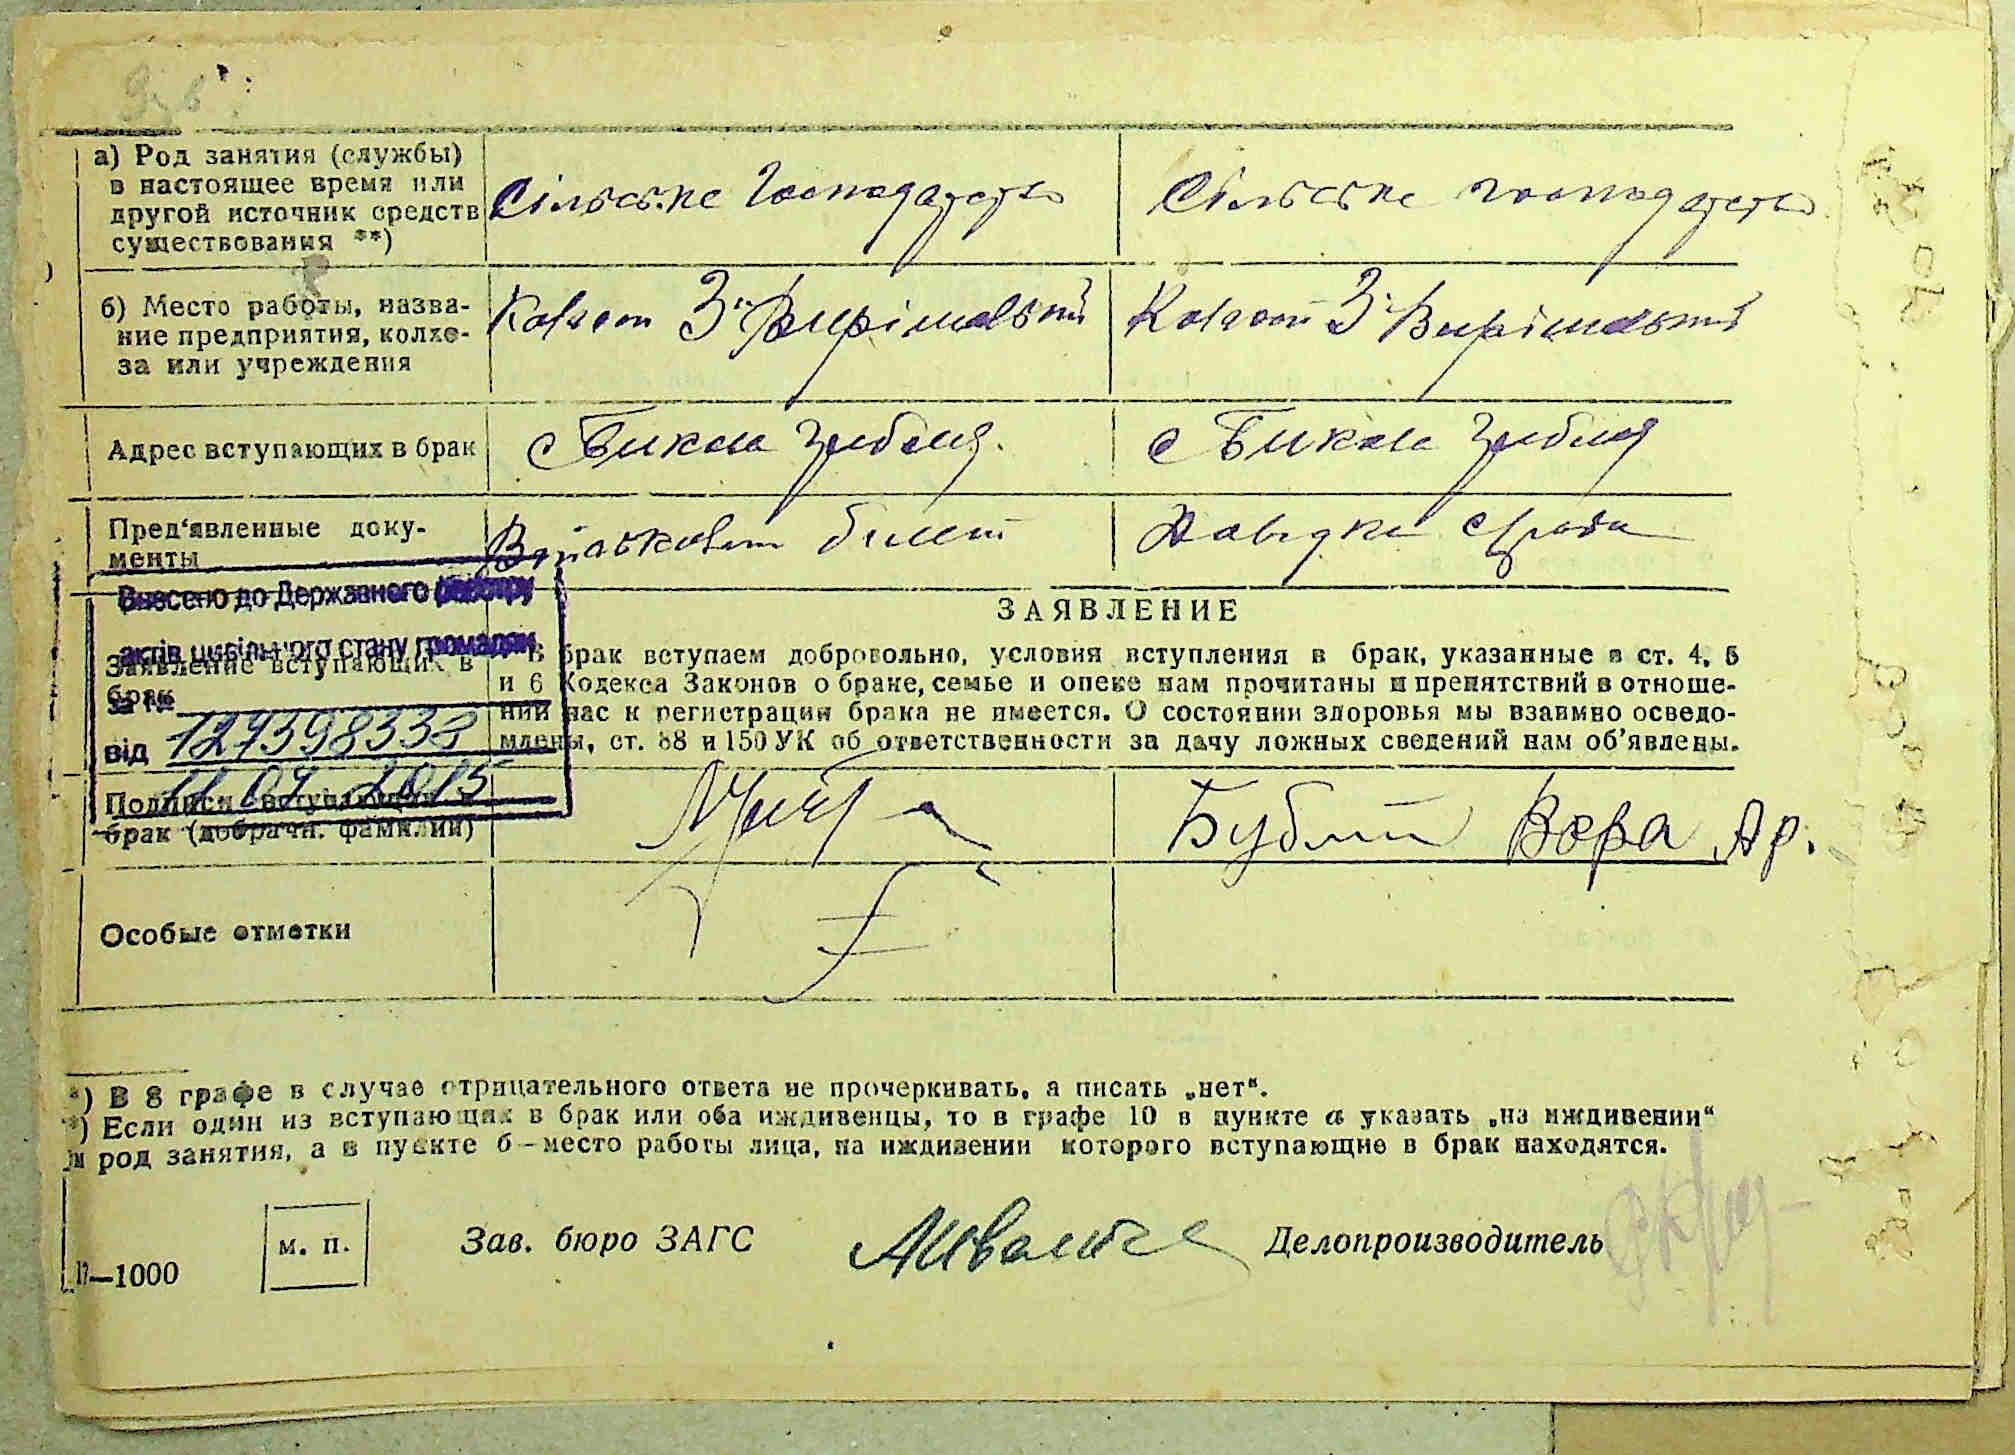 а) Род занятия (службы)
в настоящее время или
другой источник средств
существования **)
Сільське господарство
Сільське господарство
б) Место работы, назва-
ние предприятия, колхо-
за или учреждения
Колгосп 3й Вирішальний
Колгосп 3й Вирішальний
Адрес вступающих в брак
с Бикова Гребля
с Бикова Гребля
Пред'явленные доку-
менты
Військовий білет
Довідка
Внесено до Державного реєстру
актів цивільного стану громадян
за №
від 127398333
11 07 2015
Заявление вступающих в
брак
ЗАЯВЛЕНИЕ
В брак вступаем добровольно, условия вступления в брак, указанные в ст. 4, 5
и 6 Кодекса Законов о браке, семье и опеке нам прочитаны и препятствий в отноше-
нии нас к регистрации брака не имеется. О состоянии здоровья мы взаимно осведо-
млены, ст. 88 и 150 УК об ответственности за дачу ложных сведений нам об'явлены.
Подписи вступающих в
брак (добрачн. фамилии)
Бублий Вера Ар.
Особые отметки
*) В 8 графе в случае отрицательного ответа не прочеркивать, а писать „нет“.
*) Если один из вступающих в брак или оба иждивенцы, то в графе 10 в пункте а указать „на иждивении“
и род занятия, а в пункте б – место работы лица, на иждивении которого вступающие в брак находятся.
м. п.
Зав. бюро ЗАГС
Делопроизводитель
17—1000